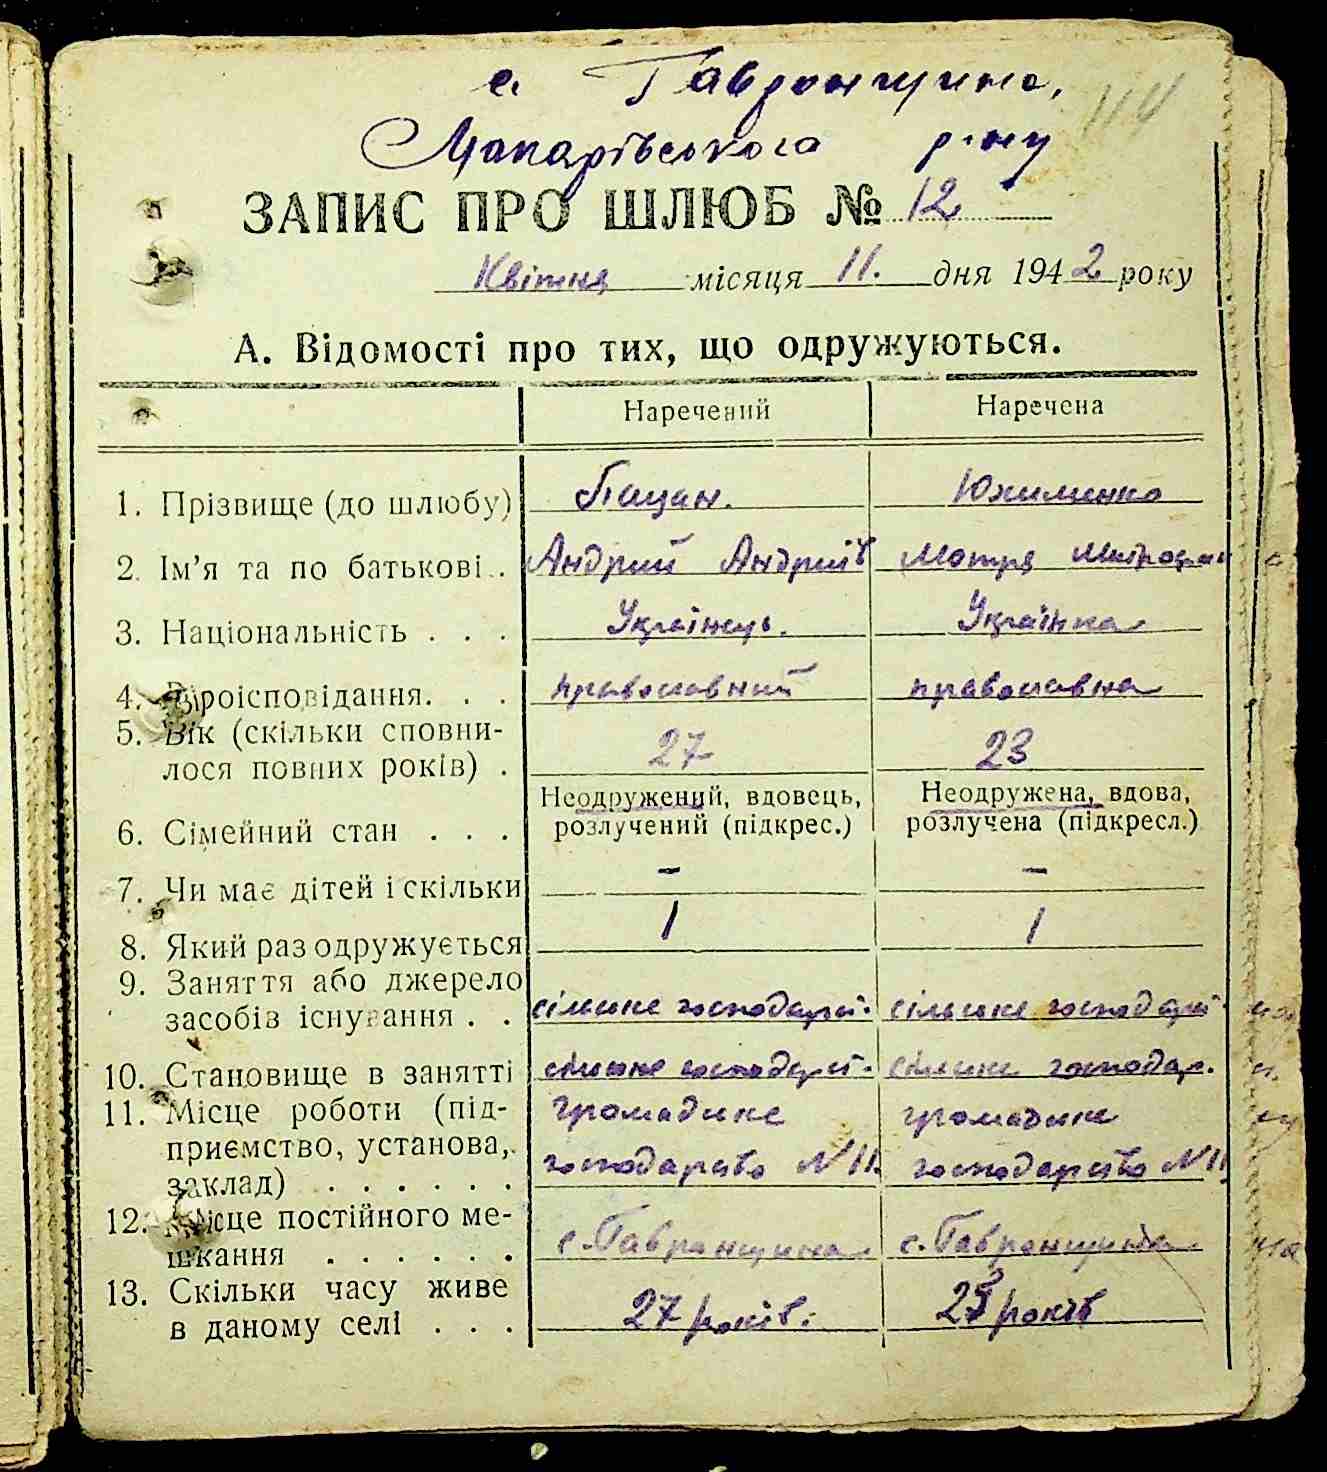 с. Гавронщина,
Макарівського р-ну
ЗАПИС ПРО ШЛЮБ № 12
Квітня місяця 11. дня 1942 року
А. Відомості про тих, що одружуються.
Наречений Наречена
1. Прізвище (до шлюбу) Пацан. Юхименко
2. Ім'я та по батькові . . Андрий Андріїв Мотря
3. Національність . . . Українець. Українка
4. Віроісповідання. . . православний православна
5. Вік (скільки сповни-
лося повних років) . 27 23
Неодружений, вдовець, Неодружена, вдова,
6. Сімейний стан . . . розлучений (підкрес.) розлучена (підкресл.)
7. Чи має дітей і скільки - -
8. Який раз одружується 1 1
9. Заняття або джерело
засобів існування . . сільське господар. сільське господар.
10. Становище в занятті сільське господар. сільське господар.
11. Місце роботи (під- громадське громадське
приємство, установа,. господарство N 11. господарство N 11
заклад) . . . . . .
12. Місце постійного ме-
шкання . . . . . . с. Гавронщина с. Гавронщина
13. Скільки часу живе
в даному селі . . . 27 років. 23 років